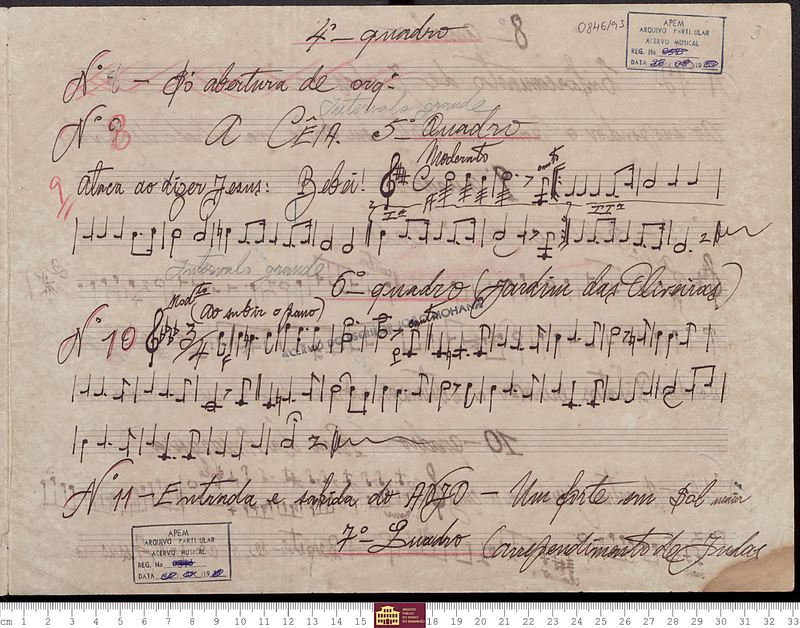 4º - quadro
0846/93
3
APEM
ARQUIVO PARTICULAR
ACERVO MUSICAL
REG. No.
DATA
Nº - Só abertura de
Intervalo grande
Nº 8 A CÊIA. 5º Quadro
Moderato
9 Ataca ao dizer Jesus: Bebei!
1ª 2ª
Intervalo grande
6º quadro (Jardim das Oliveiras)
Modto (Ao subir o pano)
Nº 10
3/4
canto
Nº 11 - Entrada e sahida do ANJO - Um forte em Sol maior
7º Quadro (arrependimento de Judas
APEM
ARQUIVO PARTICULAR
ACERVO MUSICAL
REG. No.
DATA
cm 1 2 3 4 5 6 7 8 9 10 11 12 13 14 15 18 19 20 21 22 23 24 25 26 27 28 29 30 31 32 33